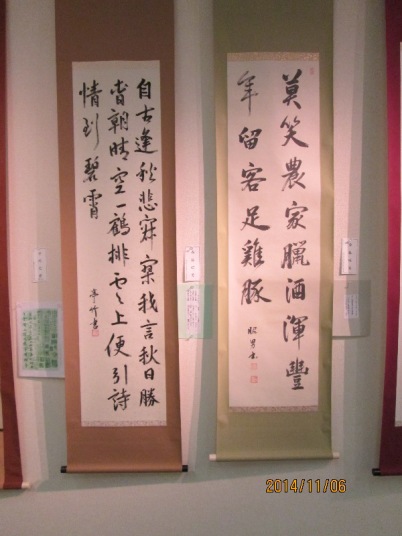 莫笑農家臘酒渾豐
年留客足雞豚
自古逢秋悲寂寥我言秋日勝
春朝晴空一鶴排雲上便引詩
情到碧霄
2014/11/06